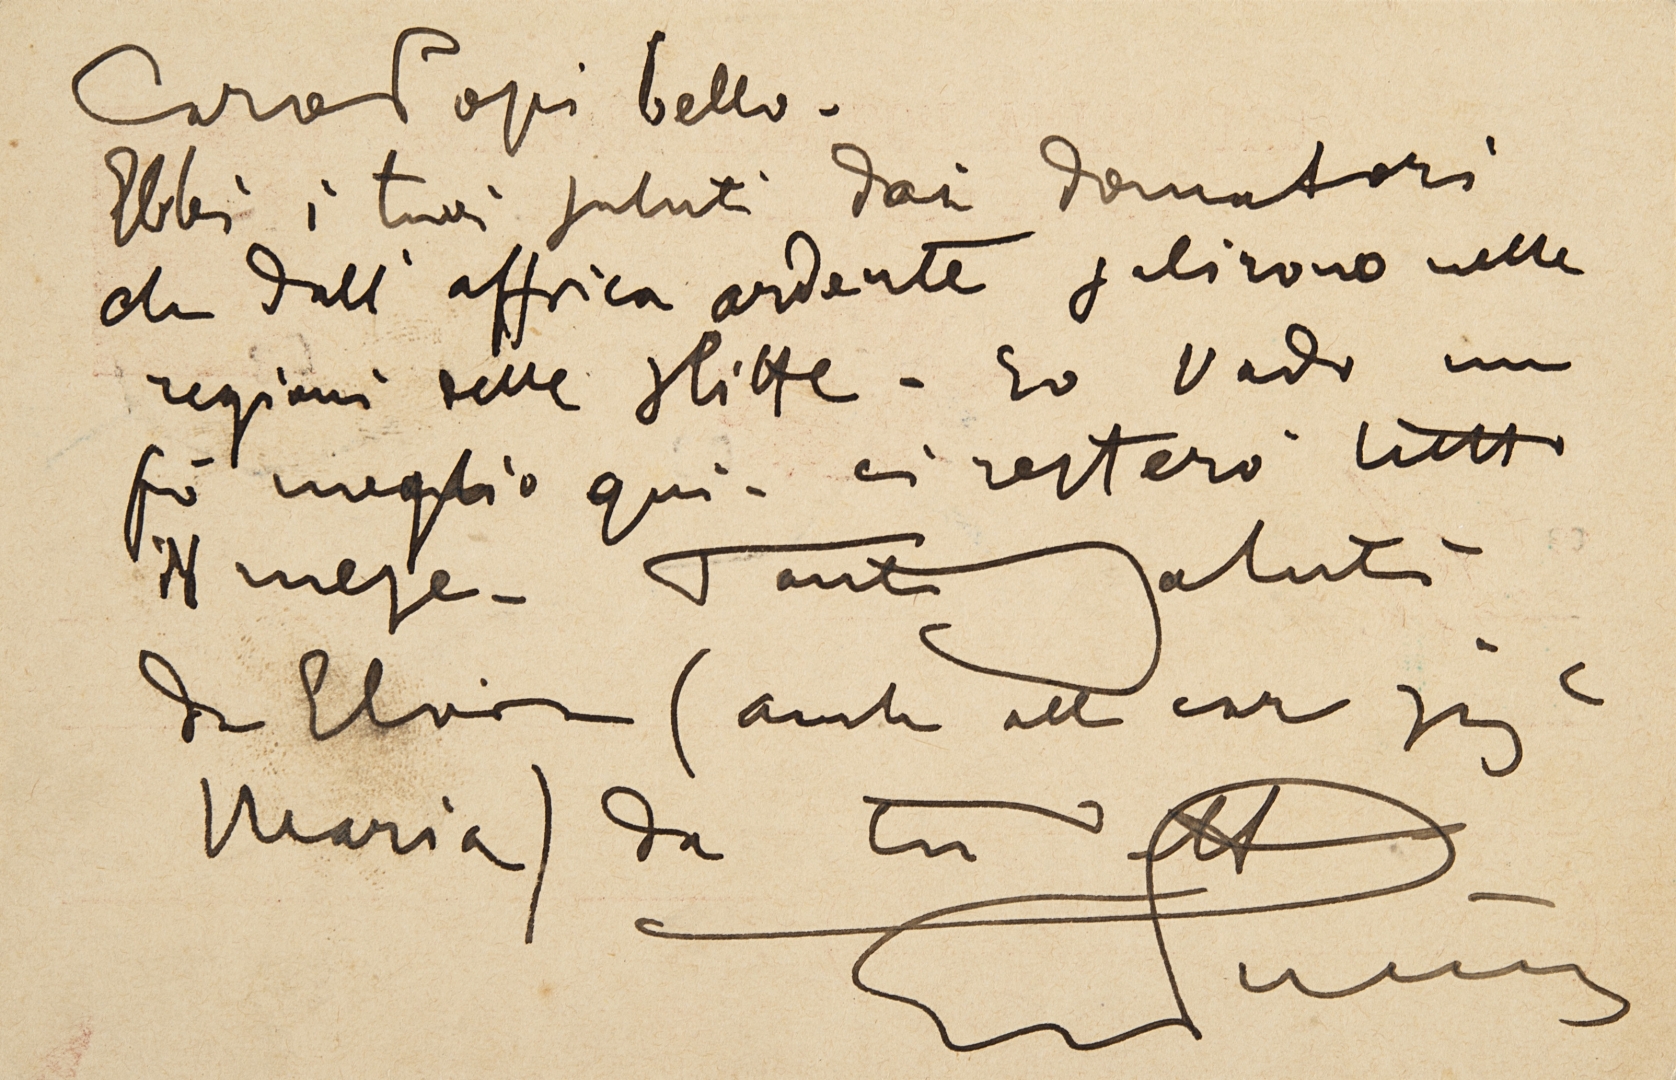 Caro Popi bello -
Ebbi i tuoi saluti dai domatori
che dall' affrica ardente salirono nelle
regioni delle slitte - Io vado un
pò meglio qui - ci resterò tutto
il mese - Tanti saluti
da Elvira (anche alla cara
Maria) da tuo
Puccini